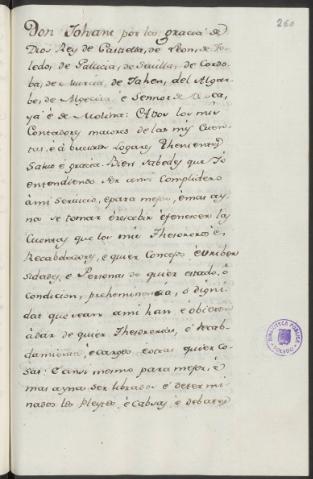 260
Don Johane por la gracia de
Dios Rey de Castiella, de Leon, de To-
ledo, de Galicia, de Sevilla, de Cordo-
ba, de Murcia, de Jahen, del Algar-
be, de Algecira, é Sennor de Vizca-
ya, é de Molina: A vos los mis
Contadores maiores de las mis Cuen-
tas, é á buestros Logares Thenientes,
Salud é gracia. Bien sabedes que Yo
entendiendo ser ansi complidero
á mi servicio, é para mejor, é mas ay-
na se tomar é rescebir é fenescer las
Cuentas que los mis Thesoreros é
Recabdadores, é quier Concejos é Univer-
sidades, é Personas de quier estado, ó
condicion, preheminencia, ó digni-
dat que sean á mi han é obieron
á dar de quier Thesorerias, é Recab-
damientos, é cargos, é otras quier co-
sas: E ansi mesmo para mejor, é
mas ayna ser librados é determi-
nados los Pleytos, é Cabsas, é debates
BIBLIOTECA PUBLICA
TOLEDO